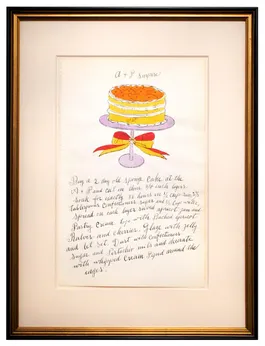 A & P Surprise
Buy a 2 day old sponge cake at the
A & P and cut in three 3/4 inch layers.
Soak for exactly 36 hours in 1/2 cup rum,
tablespoons confectioners sugar and 1/2 cup water,
spread on each layer sieved apricot jam and
Pastry Creme, top with stewed apricot
Halves and cherries. Glaze with jelly
and let set. Dust with confectioners
sugar and Pistachio nuts and decorate
with whipped Cream piped around the
edges.